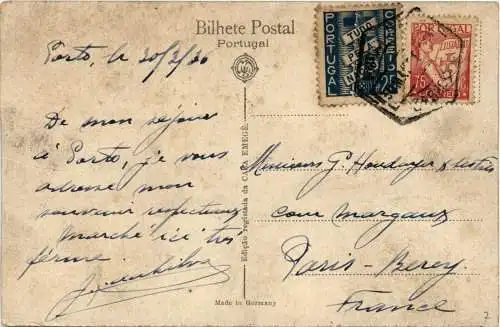 Bilhete Postal
Portugal
Porto, le 20/2/36
De mon séjour
à Porto, je vous
adresse mon
souvenir respectueux
marché ici très
ferme.
Edição registada da CASA EMEGÊ
Made in Germany
PORTUGAL
CORREIO
TUDO
PELA
25
PORTUGAL
75
Messieurs G.
cour margaux
Paris-Bercy
France
2